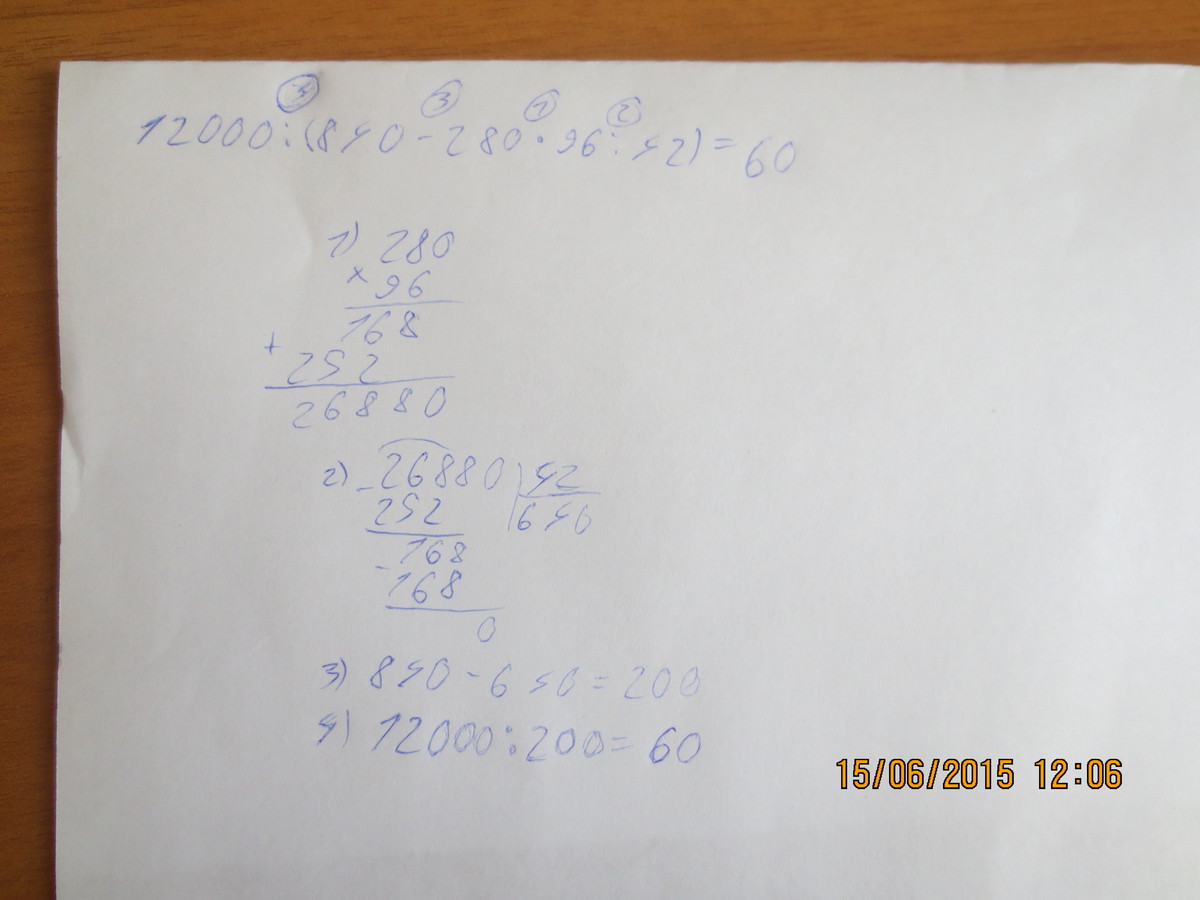 4 3 1 2
12000:(840-280·96:42)=60
1) 280
× 96
168
+ 252
26880
2) -26880 42
252 640
-168
168
0
3) 840-640=200
4) 12000:200=60
15/06/2015 12:06